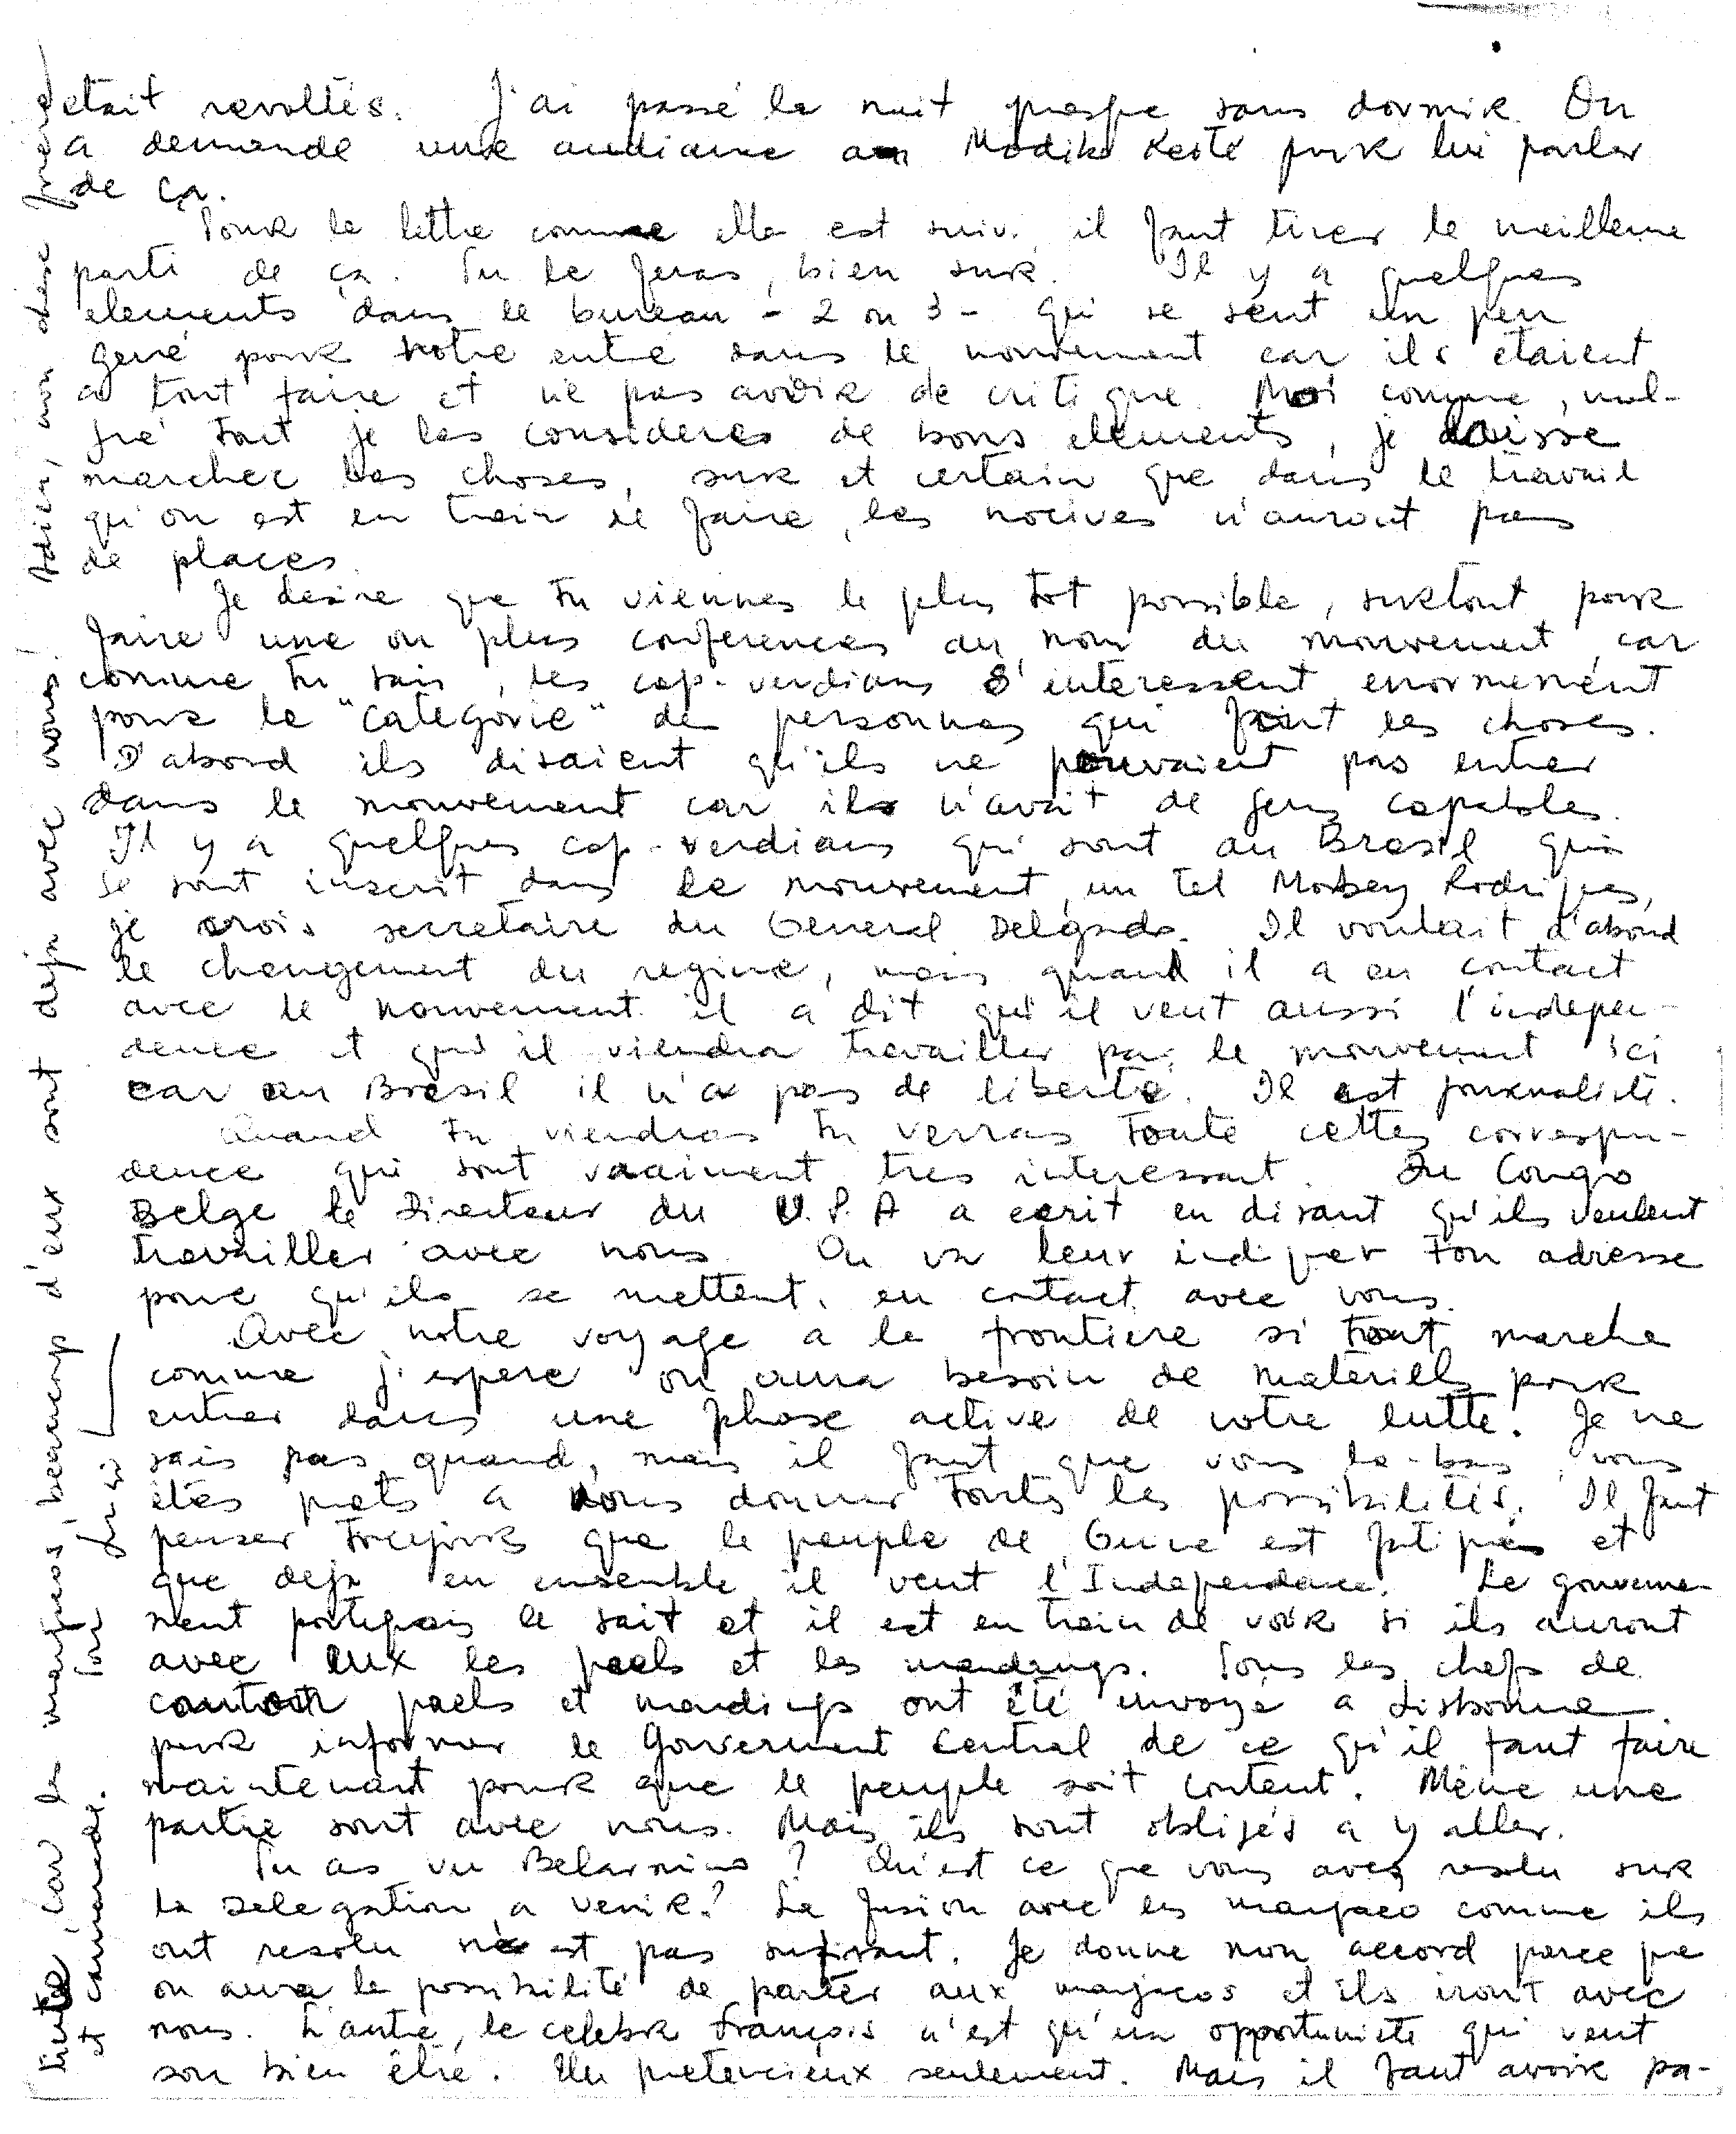 etait revoltés. J'ai passé la nuit presque sans dormir. On
a demandé une audiance au Modibo Keité pour lui parler
de ça.
Pour la lettre comme elle est suiv. il faut tirer le meilleure
parti de ça. Tu le feras, bien sur. Il y a quelques
elements dans le bureau - 2 ou 3 - qui se sent un peu
gené pour notre entré dans le mouvement car ils étaient
a tout faire et ne pas avoir de critique. Moi comme, mal-
gré tout je les consideres de bons elements, je laisse
marcher las choses, sur et certain que dans le travail
qu'on est en train de faire, les nocives n'auront pas
de places.
Je desire que tu viennes le plus tot possible, surtout pour
faire une ou plus conferences au nom du mouvement, car
comme tu sais, les cap-verdians s'interessent enormement
pour la "categorie" de personnas qui font les choses.
D'abord ils disaient qu'ils ne pouvaient pas entrer
dans le mouvement car ils n'avait de gens capables.
Il y a quelques cap-verdians qui sont au Bresil qui
se sont inscrit dans le mouvement, un tel Rodrigues,
je crois secretaire du General Delgado. Il voulait d'abord
le changement du regime, mais quand il a eu contact
avec le mouvement il a dit qu'il veut aussi l'indepen-
dence et qu'il viendra travailler par le mouvement ici
car au Bresil il n'a pas de liberté. Il est journaliste.
Quand tu viendras tu verras toute cettes correspon-
dence qui sont vraiment tres interessant. Du Congo
Belge le Directeur du U.P.A a ecrit en disant qu'ils veulent
travailler avec nous. On va leur indiquer ton adresse
pour qu'ils se mettent en contact avec vous.
Avec notre voyage a la frontiere si tout marche
comme j'espere on aura besoin de materiells pour
entrer dans une phase active de notre lutte. Je ne
sais pas quand, mais il faut que vous la-bas, vous
etes prets a nous donner touts les possibilités. Il faut
penser toujours que le peuple de Guine est fatigués et
que deja en ensemble il veut l'Independance. Le gouverne-
ment portugais le sait et il est en train de voir si ils auront
avec eux les paels et les mandings. Tous les chefs de
canton paels et mandings ont été envoyé a Lisbonne
pour informer le Gouverment Central de ce qu'il faut faire
maintenant pour que le peuple soit content. Même une
partie sont avec nous. Mais ils sont obligés a y aller.
Tu as vu Belarmino? Qu'est ce que vous avez reslu sur
la Delegation a venir? La fusion avec les manjaco comme ils
ont resolu n'est pas sufisant. Je donne mon accord parce que
on aura la possibilité de parler aux manjacos et ils iront avec
nous. L'autre, le celebre François n'est qu'un opportuniste qui veut
son bien être. Un pretencieux seulement. Mais il faut avoir pa-
tiente, car les manjacos, beaucoup d'eux sont deja avec nous. Adieu, mon
et camarade.